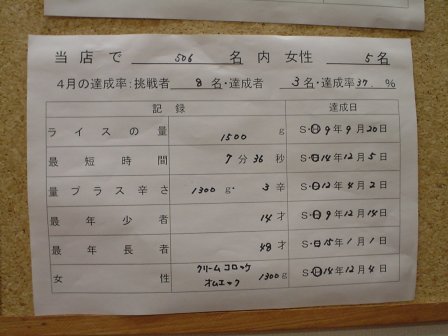 当店で 506 名内 女性 5名
4月の達成率:挑戦者 8名・達成者 3名・達成率37.%
記録 達成日
ライスの量 1500g S・H9年9月20日
最短時間 7分36秒 S・H14年12月5日
量プラス辛さ 1300g・3辛 S・H12年4月2日
最年少者 14才 S・H9年12月14日
最年長者 48才 S・H15年1月1日
女性 クリームコロッケ オムエッグ 1300g S・H14年12月4日